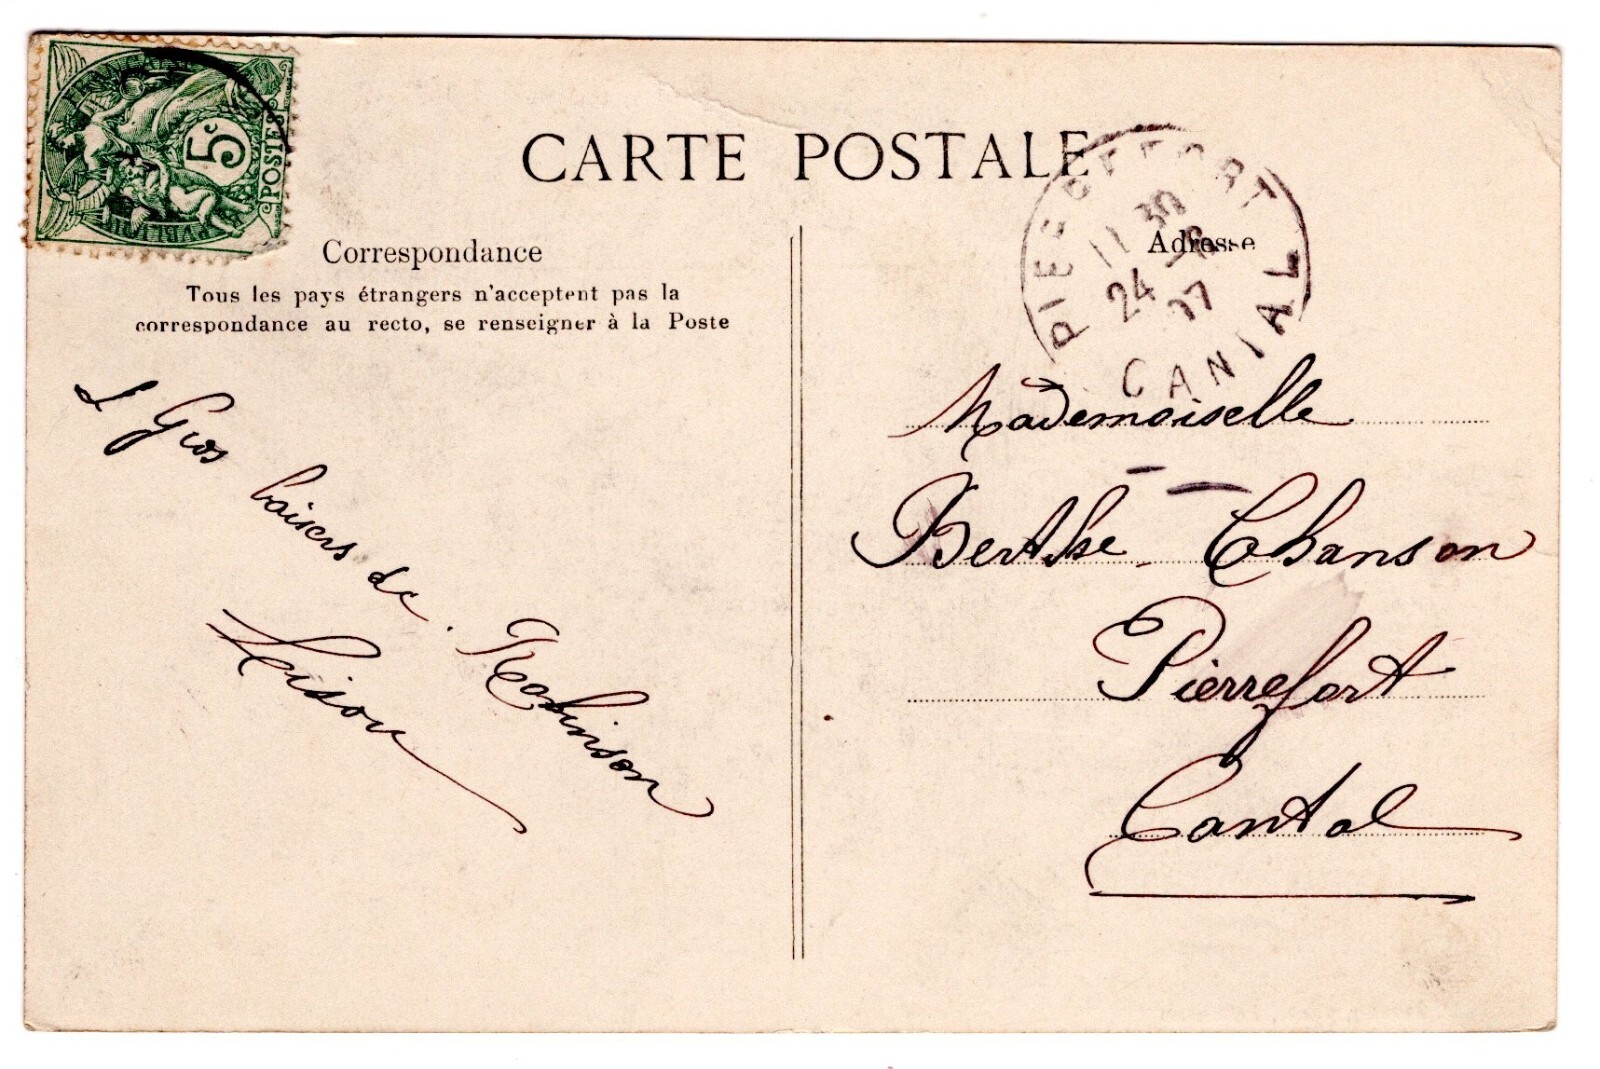 FRANÇAISE
5c
POSTES
CARTE POSTALE
PIERREFORT
11 30
24
07
CANTAL
Correspondance
Tous les pays étrangers n'acceptent pas la
correspondance au recto, se renseigner à la Poste
Adresse
Gros baisers de Robinson
Mademoiselle
Berthe Chanson
Pierrefort
Cantal